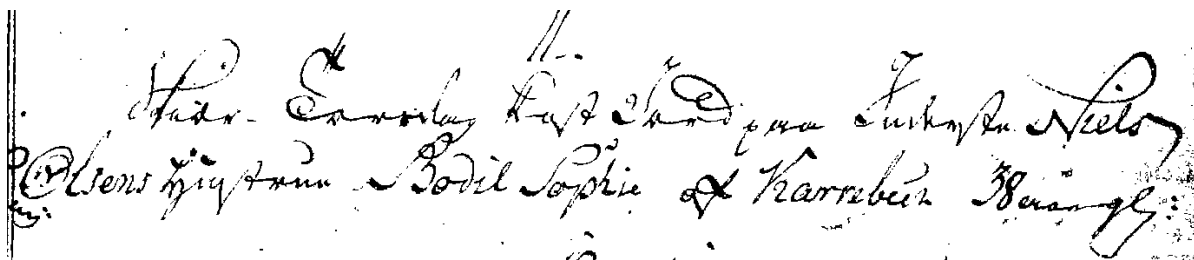 Skiær-Torsdag Kast Jord paa Inderste Niels
Olsens Hustrue Bodil Sophie af Karrebek 38 aar gl: